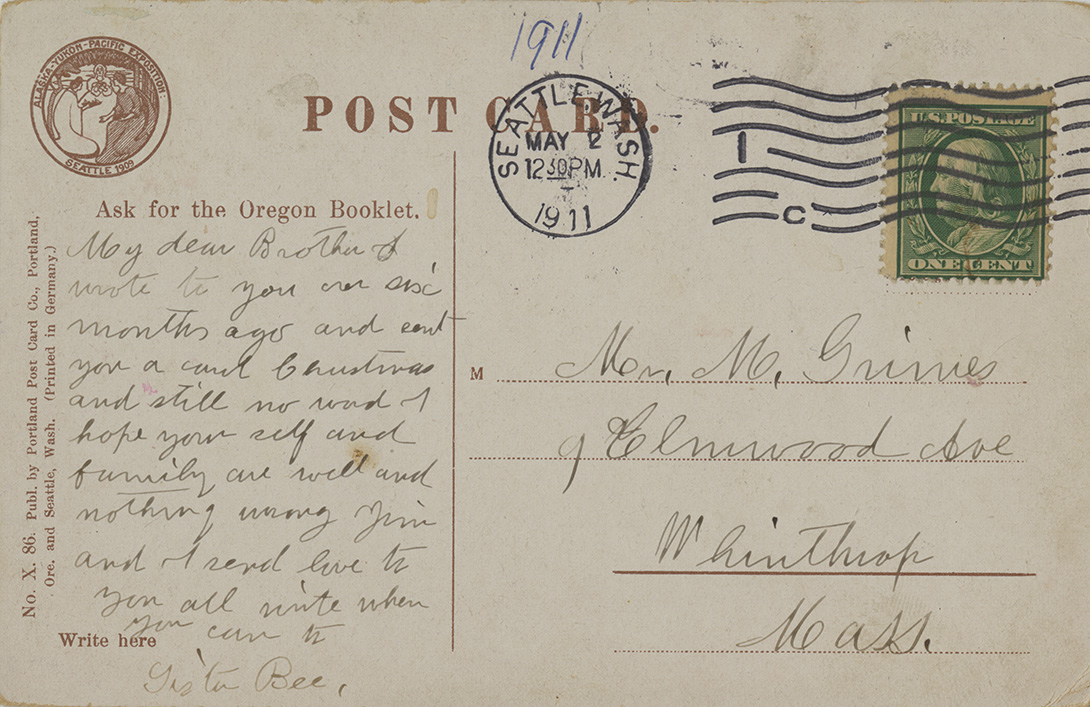 1911
ALASKA-YUKON-PACIFIC EXPOSITION.
SEATTLE 1909
POST CARD.
SEATTLE, WASH.
MAY 2
12 30 PM
1911
1
C
U.S. POSTAGE
ONE CENT
Ask for the Oregon Booklet.
My dear Brother I
wrote to you over six
months ago and sent
you a card Chrustmas
and still no word I
hope your self and
family are well and
nothing wrong Jim
and I send love to
you all write when
you can to
Sister Bee,
Write here
No. X. 86. Publ. by Portland Post Card Co., Portland,
Ore. and Seattle, Wash. (Printed in Germany.)
M Mr. M. Grimes
9 Elmwood Ave
Whinthrop
Mass.